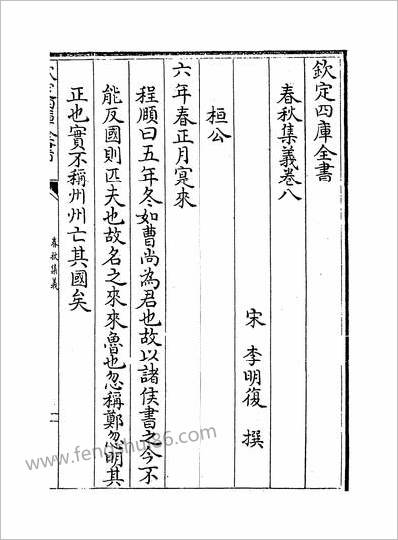 欽定四庫全書
春秋集義卷八
宋 李明復 撰
桓公
六年春正月寔來
程頤曰五年冬如曹尚為君也故以諸侯書之今不
能反國則匹夫也故名之來來魯也忽稱鄭忽明其
正也實不稱州州亡其國矣
春秋集義
www.fengshui86.com